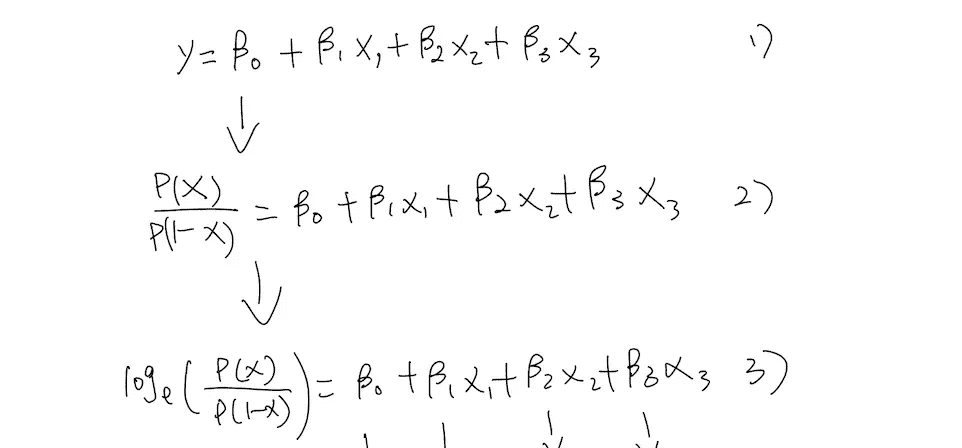 y = β₀ + β₁x₁ + β₂x₂ + β₃x₃ 1)
P(X)/P(1-X) = β₀ + β₁x₁ + β₂x₂ + β₃x₃ 2)
logₑ(P(X)/P(1-X)) = β₀ + β₁x₁ + β₂x₂ + β₃x₃ 3)